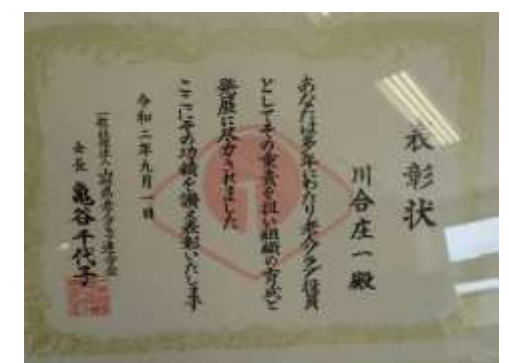 表彰状
川合庄一殿
あなたは多年にわたり老人クラブ役員
としてその重責を担い組織の育成と
発展に尽力されました
ここにその功績を讃え表彰いたします
令和二年九月一日
一般社団法人山県市クラブ連合会
会長 亀谷千代子